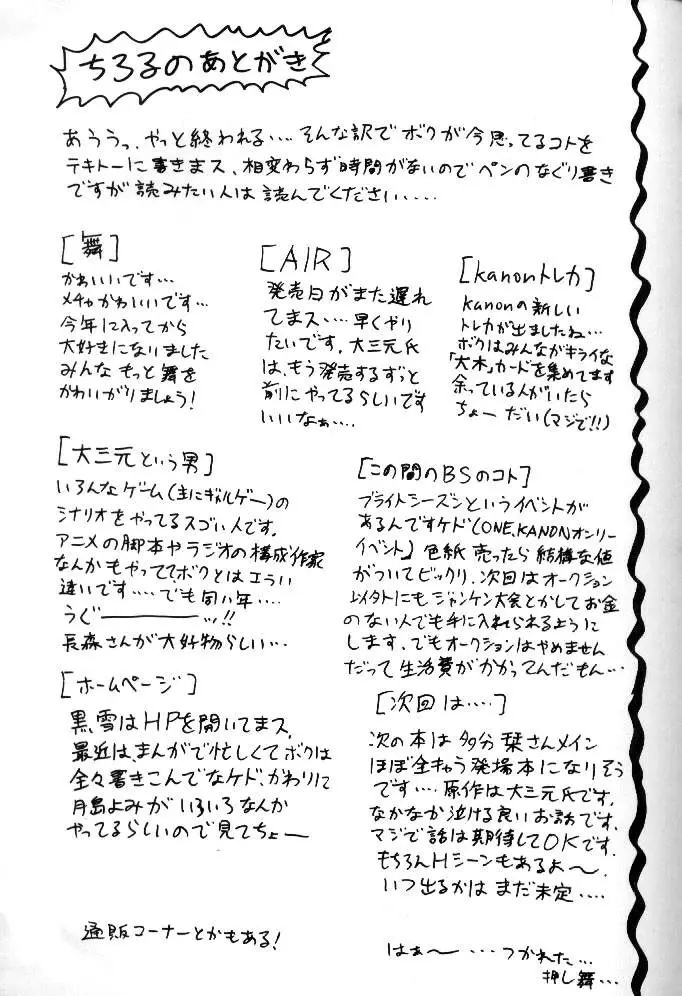 ちろるのあとがき
あううっ、やっと終われる‥‥そんな訳でボクが今思ってるコトを
テキトーに書きまス、相変わらず時間がないのでペンのなぐり書き
ですが読みたい人は読んでください‥‥‥
[舞]
かわいいです…
メチャかわいいです…
今年に入ってから
大好きになりました
みんなもっと舞を
かわいがりましょう!
[AIR]
発売日がまた遅れ
てまス‥‥早くやり
たいです。大三元氏
は、もう発売するずっと
前にやってるらしいです
いいなぁ‥‥
[kanonトレカ]
kanonの新しい
トレカが出ましたね…
ボクはみんながキライな
「大木」カードを集めてます
余っている人がいたら
ちょーだい(マジで!!)
[大三元という男]
いろんなゲーム(主にギャルゲー)の
シナリオをやってるスゴい人です。
アニメの脚本やラジオの構成作家
なんかもやっててボクとはエラい
違いです‥‥でも同い年‥‥
うぐーーーーッ!!
長森さんが大好物らしい…
[この間のBSのコト]
ブライトシーズンというイベントが
あるんですケド(ONE、KANONオンリー
イベント)色紙売ったら結構な値
がついてビックリ、次回はオークション
以外にもジャンケン大会とかしてお金
のない人でも手に入れられるように
します、でもオークションはやめません
だって生活費がかかってんだもん…
[ホームページ]
黒雪はHPを開いてまス、
最近は、まんがで忙しくてボクは
全々書きこんでなケド、かわりに
月島よみがいろいろなんか
やってるらしいので見てちょー
通販コーナーとかもある!
[次回は‥‥]
次の本は多分栞さんメイン
ほぼ全キャラ発場本になりそう
です‥‥原作は大三元氏です。
なかなか泣ける良いお話です。
マジで話は期待してOKです。
もちろんHシーンもあるよ〜。
いつ出るかはまだ未定‥‥
はぁ〜…つかれた…
押し舞…